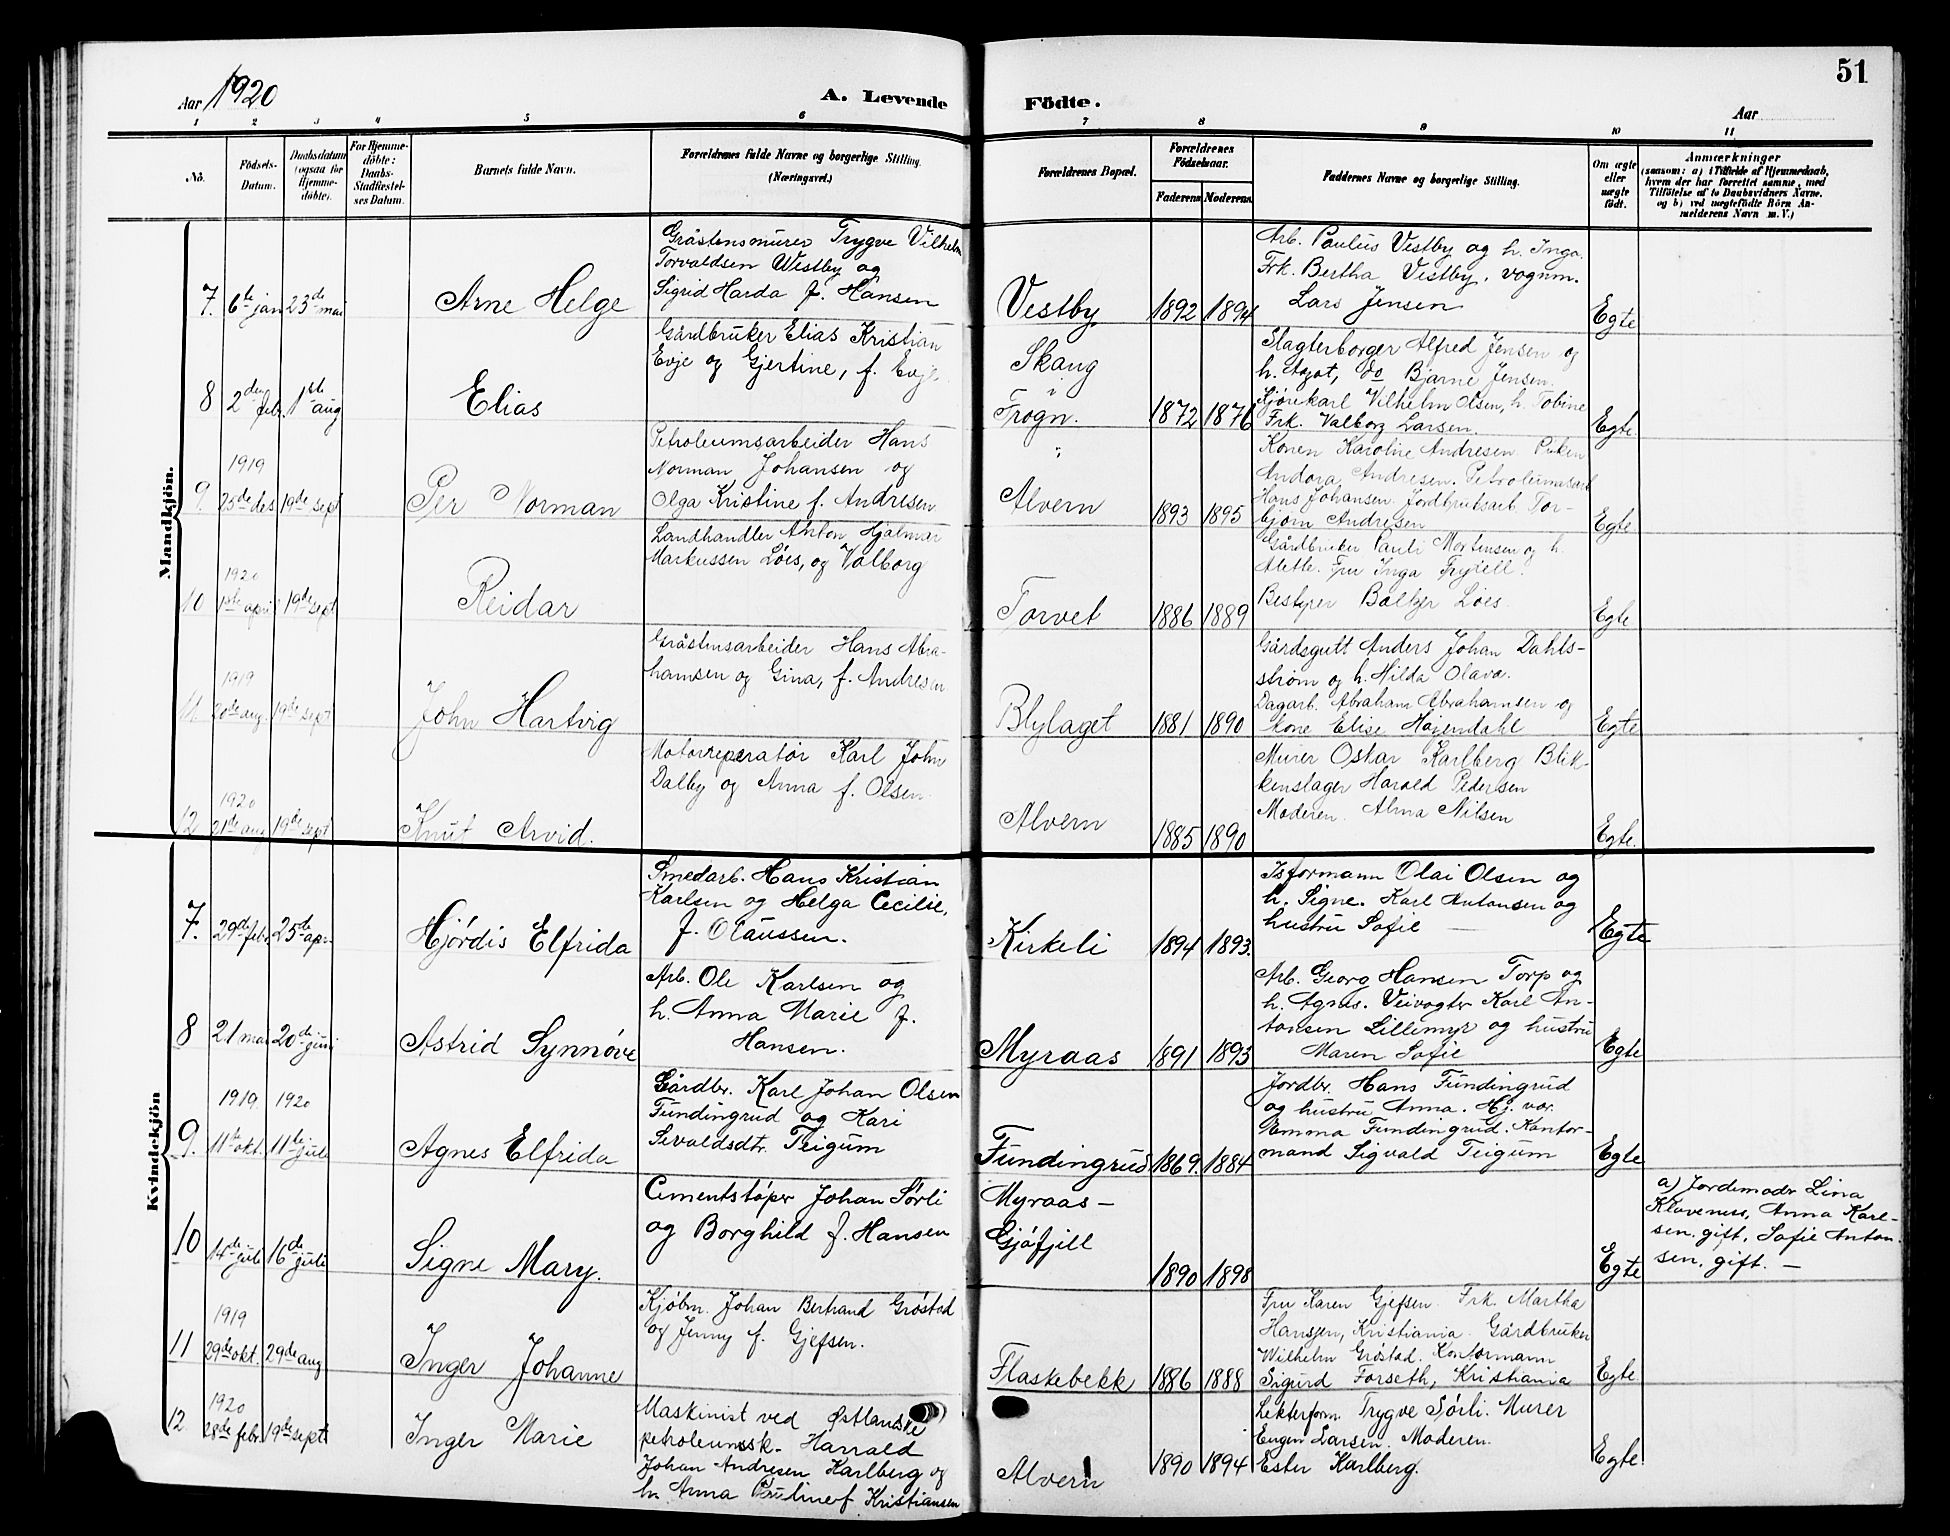 51
Aar 1920
A. Levende Födte.
Aar
1 2 3 4 5 6 7 8 9 10 11
Nò. Födsels-Datum. Daabsdatum (ogsaa for Hjemme-döbte). For Hjemme-döbte: Daabs-Stadfæstel-ses Datum. Barnets fulde Navn. Forældrenes fulde Navne og borgerlige Stilling. (Næringsvei.) Forældrenes Bopæl. Forældrenes Födselsaar. Faderens Moderens Faddernes Navne og borgerlige Stilling. Om ægte eller uægte födt.
Anmærkninger
(saasom: a) i Tilfælde af Hjemmedaab, hvem der har forrettet samme, med Tilföielse af to Daabsvidners Navne. og b) ved uægtefödte Börn An-melderens Navn m. V.)
Mandkjön.
7. 6te jan 23de mai
Arne Helge
Gråstensmurer Trygve Vilhelm
Torvaldsen Westby og
Sigrid Harda f. Hansen
Vestby 1892 1894
Arb. Paulus Vestby og h. Inga.
Frk. Bertha Vestby, vognm.
Lars Jensen
Egte
8 2den febr. 1ste aug
Elias
Gårdbruker Elias Kristian
Evje og Gjertine, f. Evje
Skaug
i
Frogn.
1872 1876
Slagterborger Alfred Jensen og
h. Agot, do Bjarne Jensen.
Sjørekarl Vilhelm Olsen, h. Tobine
Frk. Valborg Larsen
Egte
9 1919
25de des 19de sept
Per Norman
Petroleumsarbeider Hans
Norman Johansen og
Olga Kristine f. Andresen
Alvern 1893 1895
Konen Karoline Andresen Piken
Andora Andresen. Petroleumsarb
Hans Johansen. Jordbruksarb. Tor-
bjørn Andresen
Egte
10 1920
1ste april 19de sept
Reidar
Landhandler Anton Hjalmar
Markussen Løes, og Valborg
Torvet 1886 1889
Gårdbruker Pauli Mortensen og h.
Aletle. Fru Inga
Bestyrer Baltzer Løes
Egte
11. 1919
20de aug. 19de sept
John Hartvig
Gråstensarbeider Hans Abra-
hamsen og Gina, f. Andresen
Blylaget 1881 1890
Gårdsgutt Anders Johan Dahls-
strøm og h. Hilda Olava.
Dagarb. Abraham Abrahamsen og
kone Elise Høiendahl
Egte
12 1920
21de aug 19de sept
Knut Arvid.
Motorreperatør Karl John
Dalby og Anna f. Olsen
Alvern 1885 1890
Murer Oskar Karlberg Blik-
kenslager Harald Pedersen
Moderen. Alma Nilsen
Egte.
Kvindekjön
7. 29de febr 25de apr.
Hjørdis Elfrida
Smedarb. Hans Kristian
Karlsen og Helga Cecilie,
f. Olaussen.
Kirkeli 1894 1893.
Isformann Olai Olsen og
h. Signe. Karl Antonsen og
hustru Sofie —
Egte
8 21 mai 20de juni
Astrid Synnøve
Arb. Ole Karlsen og
h. Anna Marie f.
Hansen.
Myraas 1891 1893
Arb. Georg Hansen Torp og
h. Agnes. Veivogter Karl An-
tonsen Lillemyr og hustru
Maren Sofie
Egte
9. 1919 1920
11te okt. 11te juli
Agnes Elfrida
Gårdbr. Karl Johan Olsen
Fundingrud og Kari
Sevaldsdtr. Teigum
Fundingrud 1869. 1884
Jordbr. Hans Fundingrud
og hustru Anna. Hj. var.
Emma Fundingrud. Kontor-
mand Sigvald Teigum
Egte
10 14de juli 16de juli
Signe Mary.
Cementstøper Johan Sørli
og Borghild f. Hansen
Myraas –
Gjøfjell
1890 1898
Egte
a) Jordemodr Lina
Klaveness, Anna Karl-
sen, gift, Sofie Anton
sen, gift. —
11 1919
29de okt. 29de aug
Inger Johanne
Kjøbm. Johan Bertrand Grøstad
og Jenny f. Gjefsen.
Flaskebekk 1886 1888
Fru Karen Gjefsen. Frk. Martha
Hansen, Kristiania. Gårdbruker
Wilhelm Grøstad. Kontormann
Sigurd Forseth, Kristiania
Egte
12 1920
28de febr. 19de sept
Inger Marie
Maskinist ved Østlandske
petroleumssk. Harrald
Johan Andresen Karlberg og
h. Anna Pauline f. Kristiansen
Alvern 1890 1894
Lekterform. Trygve Sørli. Murer
Eugen Larsen. Moderen.
Ester Karlberg.
Egte